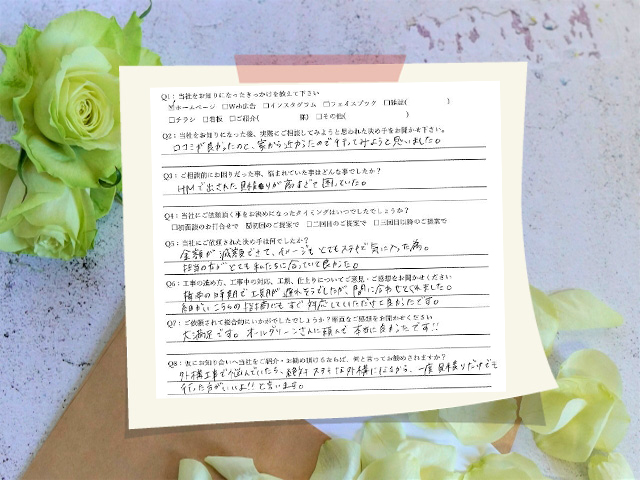 Q1：当社をお知りになったきっかけを教えて下さい
☑ホームページ □Web広告 □インスタグラム □フェイスブック □雑誌(　　　)
□チラシ □看板 □ご紹介(　　　様) □その他(　　　)
Q2：当社をお知りになった後、実際にご相談してみようと思われた決め手をお聞かせ下さい。
口コミが良かったのと、家から近かったので行ってみようと思いました。
Q3：ご相談前にお困りだった事、悩まれていた事はどんな事でしたか？
HMで出された見積りが高すぎて困っていた。
Q4：当社にご依頼頂く事をお決めになったタイミングはいつでしたでしょうか？
□初面談のお打合せで ☑初回のご提案で □二回目のご提案で □三回目以降のご提案で
Q5：当社にご依頼された決め手は何でしたか？
金額が減額できて、イメージもとてもステキで気に入った為。
担当の方がとても私たちに合っていて良かった。
Q6：工事の進め方、工事中の対応、工期、仕上りについてご意見・ご感想をお聞かせください
積雪の時期で工期が遅れそうでしたが、間に合わせてくれました。
細かいこちらの指摘にもすぐ対応していただけて良かったです。
Q7：ご依頼されて総合的にいかがでしたでしょうか？率直なご感想をお聞かせください
大満足です。オールグリーンさんに頼んで本当に良かったです!!
Q8：友にお知り合いへ当社をご紹介・お勧め頂けるとすれば、何と言ってお勧めされますか？
外構工事で悩んでいたら、絶対ステキな外構になるから、一度見積りだけでも
行った方がいいよ!!と言います。